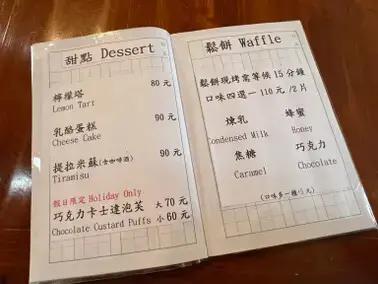 甜點 Dessert
檸檬塔 80 元
Lemon Tart
乳酪蛋糕 90 元
Cheese Cake
提拉米蘇(含咖啡酒) 90 元
Tiramisu
假日限定 Holiday Only
巧克力卡士達泡芙 大 70 元
Chocolate Custard Puffs 小 60 元
鬆餅 Waffle
鬆餅現烤需等候 15 分鐘
口味四選一 110 元 /2片
煉乳 蜂蜜
Condensed Milk Honey
焦糖 巧克力
Caramel Chocolate
(口味多一種 元)